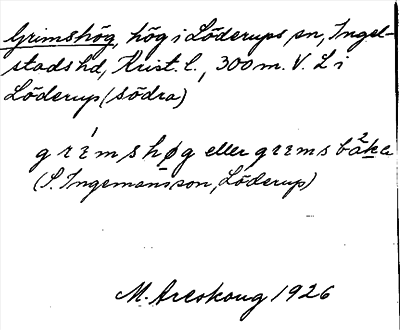 Grimshög, hög i Löderups sn, Ingel-
stads hd, Krist. l., 300 m. V. L i
Löderup (södra)
grímshøg eller grims bå²ka
(S. Ingemansson, Löderup)
M. Areskoug 1926